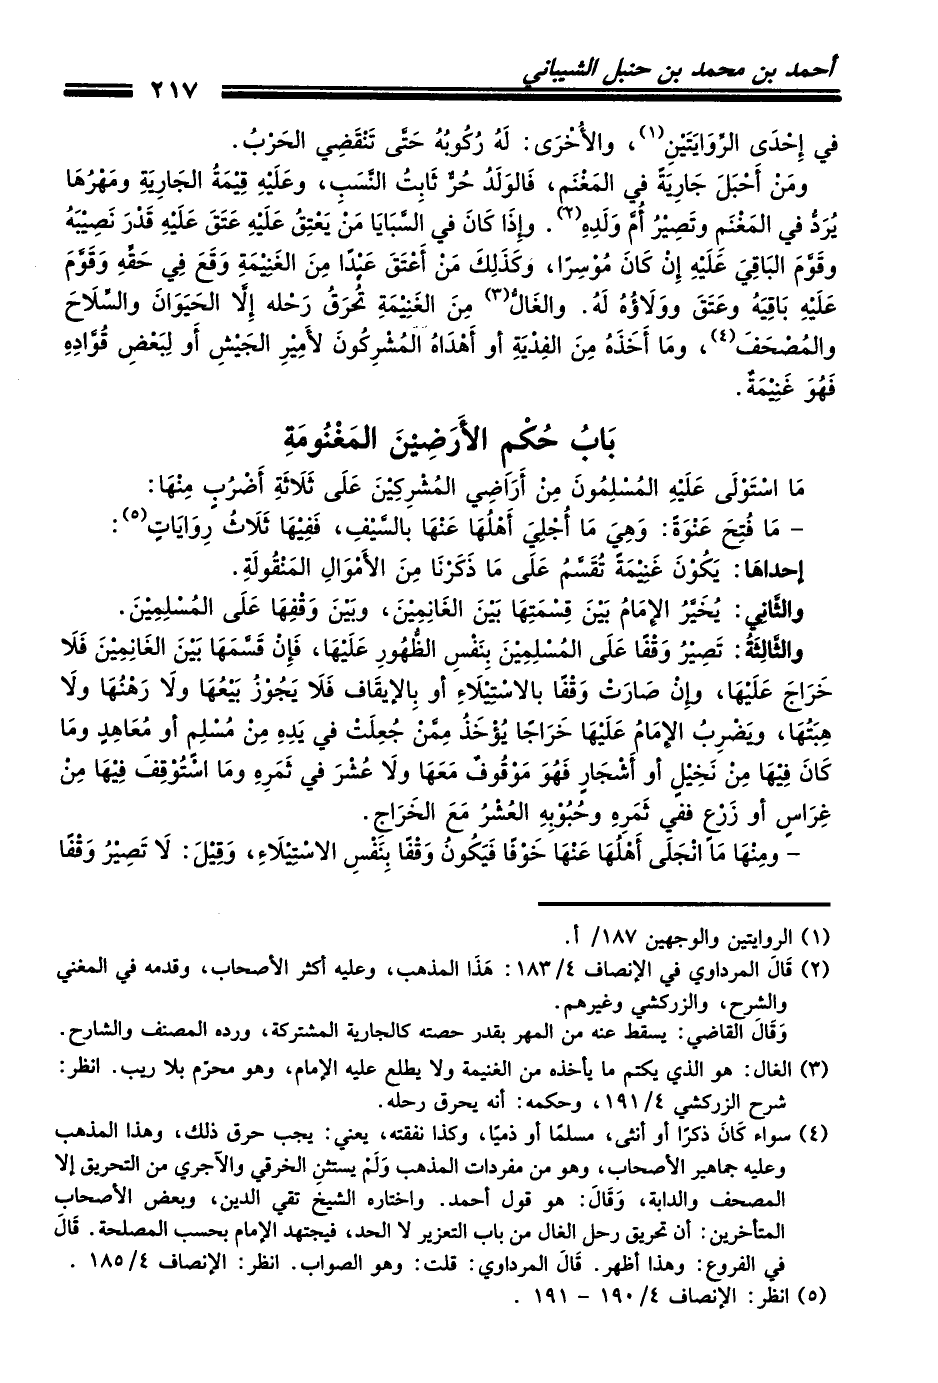 أحمد بن محمد بن حنبل الشيباني
٢١٧
في إِحْدَى الرِّوَايَتَينِ(١)، والأُخْرَى: لَهُ رُكُوبُهُ حَتَّى تَنْقَضِي الحَرْبُ.
ومَنْ أَحْبَلَ جَارِيَةً في المَغْنَمِ، فَالوَلَدُ حُرٌّ ثَابِتُ النَّسَبِ، وعَلَيْهِ قِيْمَةُ الجَارِيَةِ ومَهْرُهَا
يُرَدُّ في المَغْنَمِ وتَصِيْرُ أُمَّ وَلَدِهِ(٢). وإِذَا كَانَ في السَّبَايَا مَنْ يَعْتِقُ عَلَيْهِ عَتَقَ عَلَيْهِ قَدْرَ نَصِيْبَهُ
وقَوَّمَ البَاقِيَ عَلَيْهِ إِنْ كَانَ مُوْسِرًا، وكَذَلِكَ مَنْ أَعْتَقَ عَبْدًا مِنَ الغَنِيْمَةِ وَقَعَ فِي حَقِّهِ وَقَوَّمَ
عَلَيْهِ بَاقِيَهُ وعَتَقَ ووَلَاؤُهُ لَهُ. والغَالُّ(٣) مِنَ الغَنِيْمَةِ تُحرَقُ رَحْله إِلَّا الحَيَوَانَ والسِّلَاحَ
والمُصْحَفَ(٤)، ومَا أَخَذَهُ مِنَ الفِدْيَةِ أو أَهْدَاهُ المُشْرِكُونَ لأَمِيْرِ الجَيْشِ أو لِبَعْضِ قُوَّادِهِ
فَهُوَ غَنِيْمَةٌ.
بَابُ حُكْمِ الأَرَضِيْنَ المَغْنُومَةِ
مَا اسْتَوْلَى عَلَيْهِ المُسْلِمُونَ مِنْ أَرَاضِي المُشْرِكِيْنَ عَلَى ثَلَاثَةِ أَضْرُبٍ مِنْهَا:
- مَا فُتِحَ عَنْوَةً: وَهِيَ مَا أُجْلِيَ أَهْلُهَا عَنْهَا بالسَّيْفِ، فَفِيْهَا ثَلَاثُ رِوَايَاتٍ(٥):
إحداهَا: يَكُوْنَ غَنِيْمَةً تُقَسَّمُ عَلَى مَا ذَكَرْنَا مِنَ الأَمْوَالِ المَنْقُولَةِ.
والثَّانِي: يُخَيَّرُ الإِمَامُ بَيْنَ قِسْمَتِهَا بَيْنَ الغَانِمِيْنَ، وبَيْنَ وَقْفِهَا عَلَى المُسْلِمِيْنَ.
والثَّالِثَةُ: تَصِيْرُ وَقْفًا عَلَى المُسْلِمِيْنَ بِنَفْسِ الظُّهُورِ عَلَيْهَا، فَإِنْ قَسَّمَهَا بَيْنَ الغَانِمِيْنَ فَلَا
خَرَاجَ عَلَيْهَا، وإِنْ صَارَتْ وَقْفًا بالاسْتِيْلَاءِ أو بالإيقَاف فَلَا يَجُوْزُ بَيْعُهَا ولَا رَهْنُهَا ولَا
هِبَتُهَا، ويَضْرِبُ الإِمَامُ عَلَيْهَا خَرَاجًا يُؤْخَذُ مِمَّنْ جُعِلَتْ في يَدِهِ مِنْ مُسْلِمٍ أو مُعَاهِدٍ ومَا
كَانَ فِيْهَا مِنْ نَخِيْلٍ أو أَشْجَارٍ فَهُوَ مَوْقُوفٌ مَعَهَا ولَا عُشْرَ في ثَمَرِهِ ومَا اسْتُوْقِفَ فِيْهَا مِنْ
غِرَاسٍ أو زَرْعٍ ففي ثَمَرِهِ وحُبُوْبِهِ العُشْرُ مَعَ الخَرَاجِ.
- ومِنْهَا مَا انْجَلَى أَهْلُهَا عَنْهَا خَوْفًا فَيَكُونُ وَقْفًا بِنَفْسِ الاسْتِيْلَاءِ، وَقِيْلَ: لَا تَصِيْرُ وَقْفًا
(١) الروايتين والوجهين ١٨٧/ أ.
(٢) قَالَ المرداوي في الإنصاف ٤/ ١٨٣: هَذَا المذهب، وعليه أكثر الأصحاب، وقدمه في المغني
والشرح، والزركشي وغيرهم.
وَقَالَ القاضي: يسقط عنه من المهر بقدر حصته كالجارية المشتركة، ورده المصنف والشارح.
(٣) الغال: هو الذي يكتم ما يأخذه من الغنيمة ولا يطلع عليه الإمام، وهو محرّم بلا ريب. انظر:
شرح الزركشي ٤/ ١٩١، وحكمه: أنه يحرق رحله.
(٤) سواء كَانَ ذكرًا أو أنثى، مسلمًا أو ذميًا، وكذا نفقته، يعني: يجب حرق ذلك، وهذا المذهب
وعليه جماهير الأصحاب، وهو من مفردات المذهب وَلَمْ يستثنِ الخرقي والآجري من التحريق إلا
المصحف والدابة، وَقَالَ: هو قول أحمد. واختاره الشيخ تقي الدين، وبعض الأصحاب
المتأخرين: أن تحريق رحل الغال من باب التعزير لا الحد، فيجتهد الإمام بحسب المصلحة. قَالَ
في الفروع: وهذا أظهر. قَالَ المرداوي: قلت: وهو الصواب. انظر: الإنصاف ٤/ ١٨٥.
(٥) انظر: الإنصاف ٤/ ١٩٠ - ١٩١.